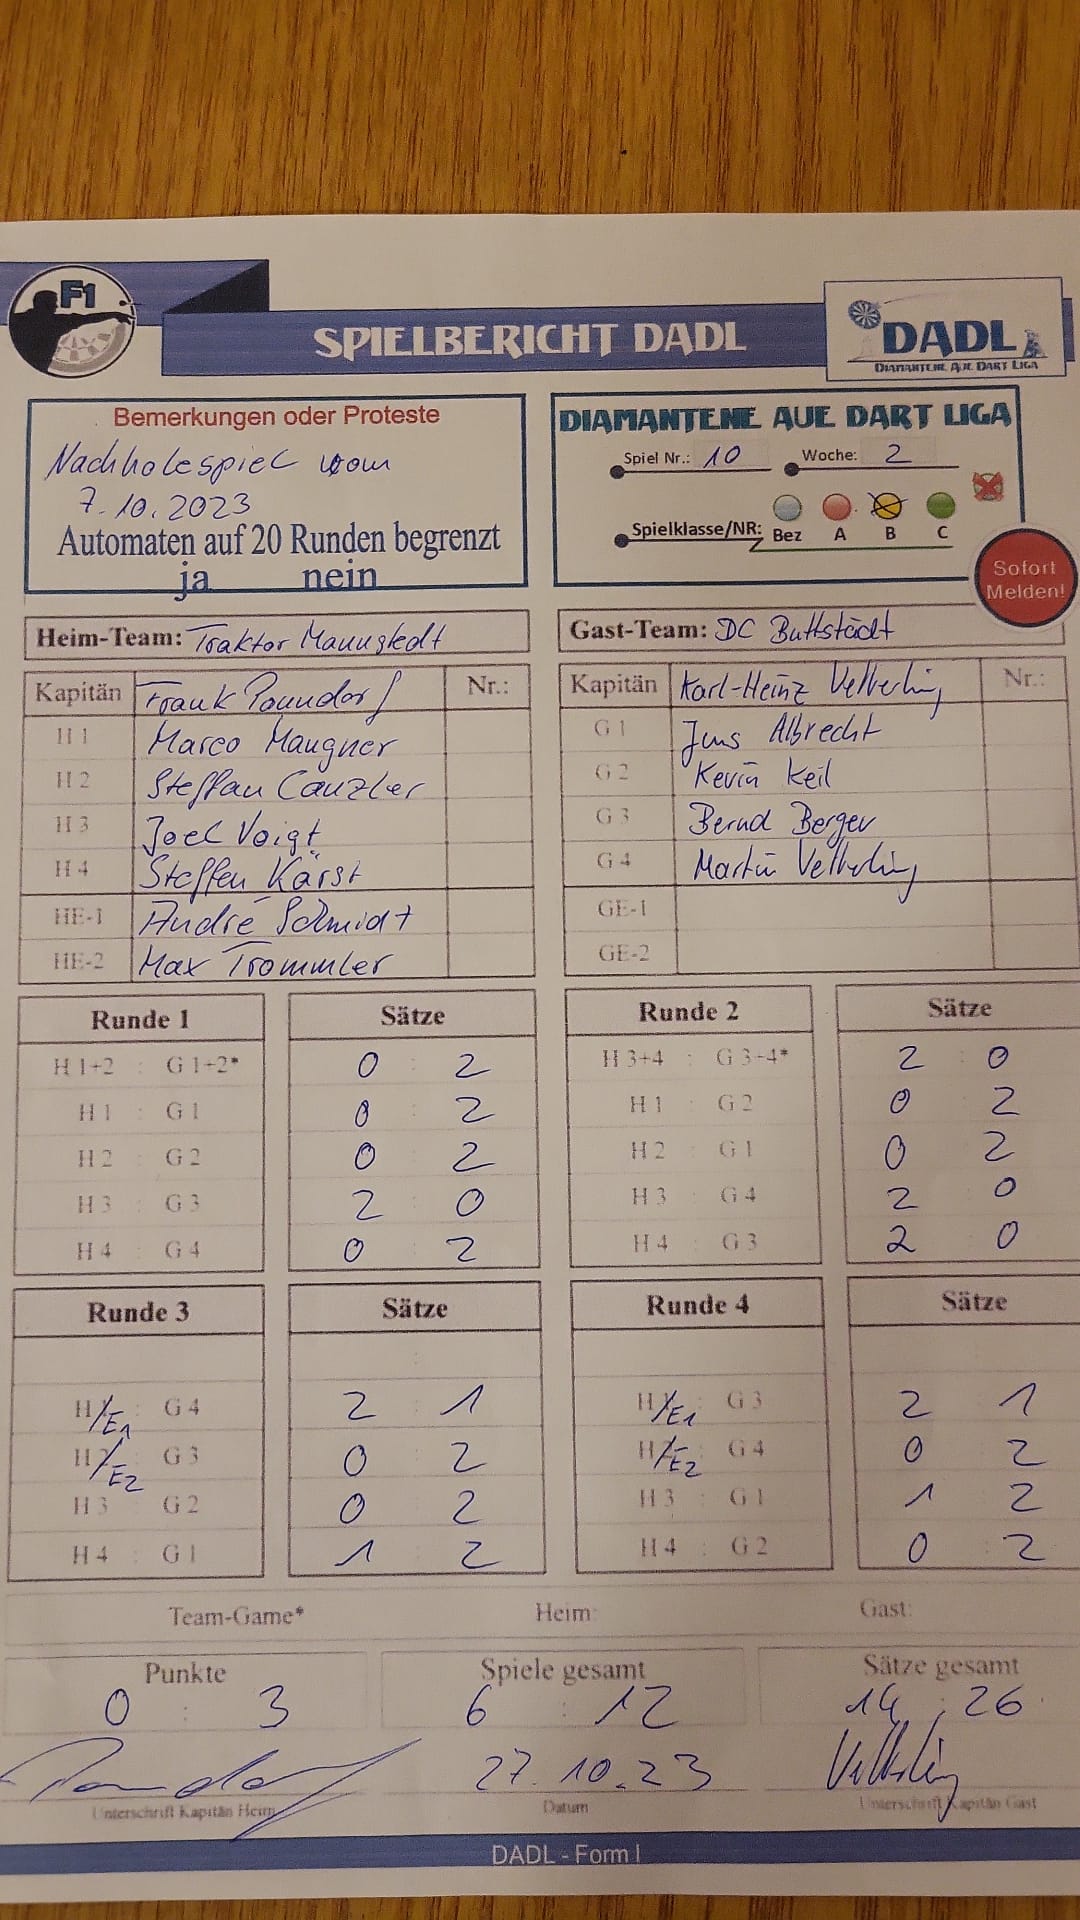 F1
SPIELBERICHT DADL
DADL
DIAMANTENE AUE DART LIGA
Bemerkungen oder Proteste
Nachholespiel vom
7.10.2023
Automaten auf 20 Runden begrenzt
ja nein
DIAMANTENE AUE DART LIGA
Spiel Nr.: 10 Woche: 2
Spielklasse/NR: Bez A B C
Sofort
Melden!
Heim-Team: Traktor Mannstedt
Gast-Team: DC Buttstädt
Kapitän Frank Poundorf Nr.:
H 1 Marco Maugner
H 2 Steffan Canzler
H 3 Joel Voigt
H 4 Steffen Kärst
HE-1 André Schmidt
HE-2 Max Trommler
Kapitän Karl-Heinz Velberling Nr.:
G 1 Jens Albrecht
G 2 Kevin Keil
G 3 Bernd Berger
G 4 Martin Velberling
GE-1
GE-2
Runde 1 Sätze
H 1+2 : G 1+2* 0 : 2
H 1 : G 1 0 : 2
H 2 : G 2 0 : 2
H 3 : G 3 2 : 0
H 4 : G 4 0 : 2
Runde 2 Sätze
H 3+4 : G 3+4* 2 : 0
H 1 : G 2 0 : 2
H 2 : G 1 0 : 2
H 3 : G 4 2 : 0
H 4 : G 3 2 : 0
Runde 3 Sätze
H1/E1 : G 4 2 : 1
H2/E2 : G 3 0 : 2
H 3 : G 2 0 : 2
H 4 : G 1 1 : 2
Runde 4 Sätze
H1/E1 : G 3 2 : 1
H2/E2 : G 4 0 : 2
H 3 : G 1 1 : 2
H 4 : G 2 0 : 2
Team-Game* Heim: Gast:
Punkte Spiele gesamt Sätze gesamt
0 : 3 6 : 12 14 : 26
27.10.23
Unterschrift Kapitän Heim Datum Unterschrift Kapitän Gast
DADL - Form I